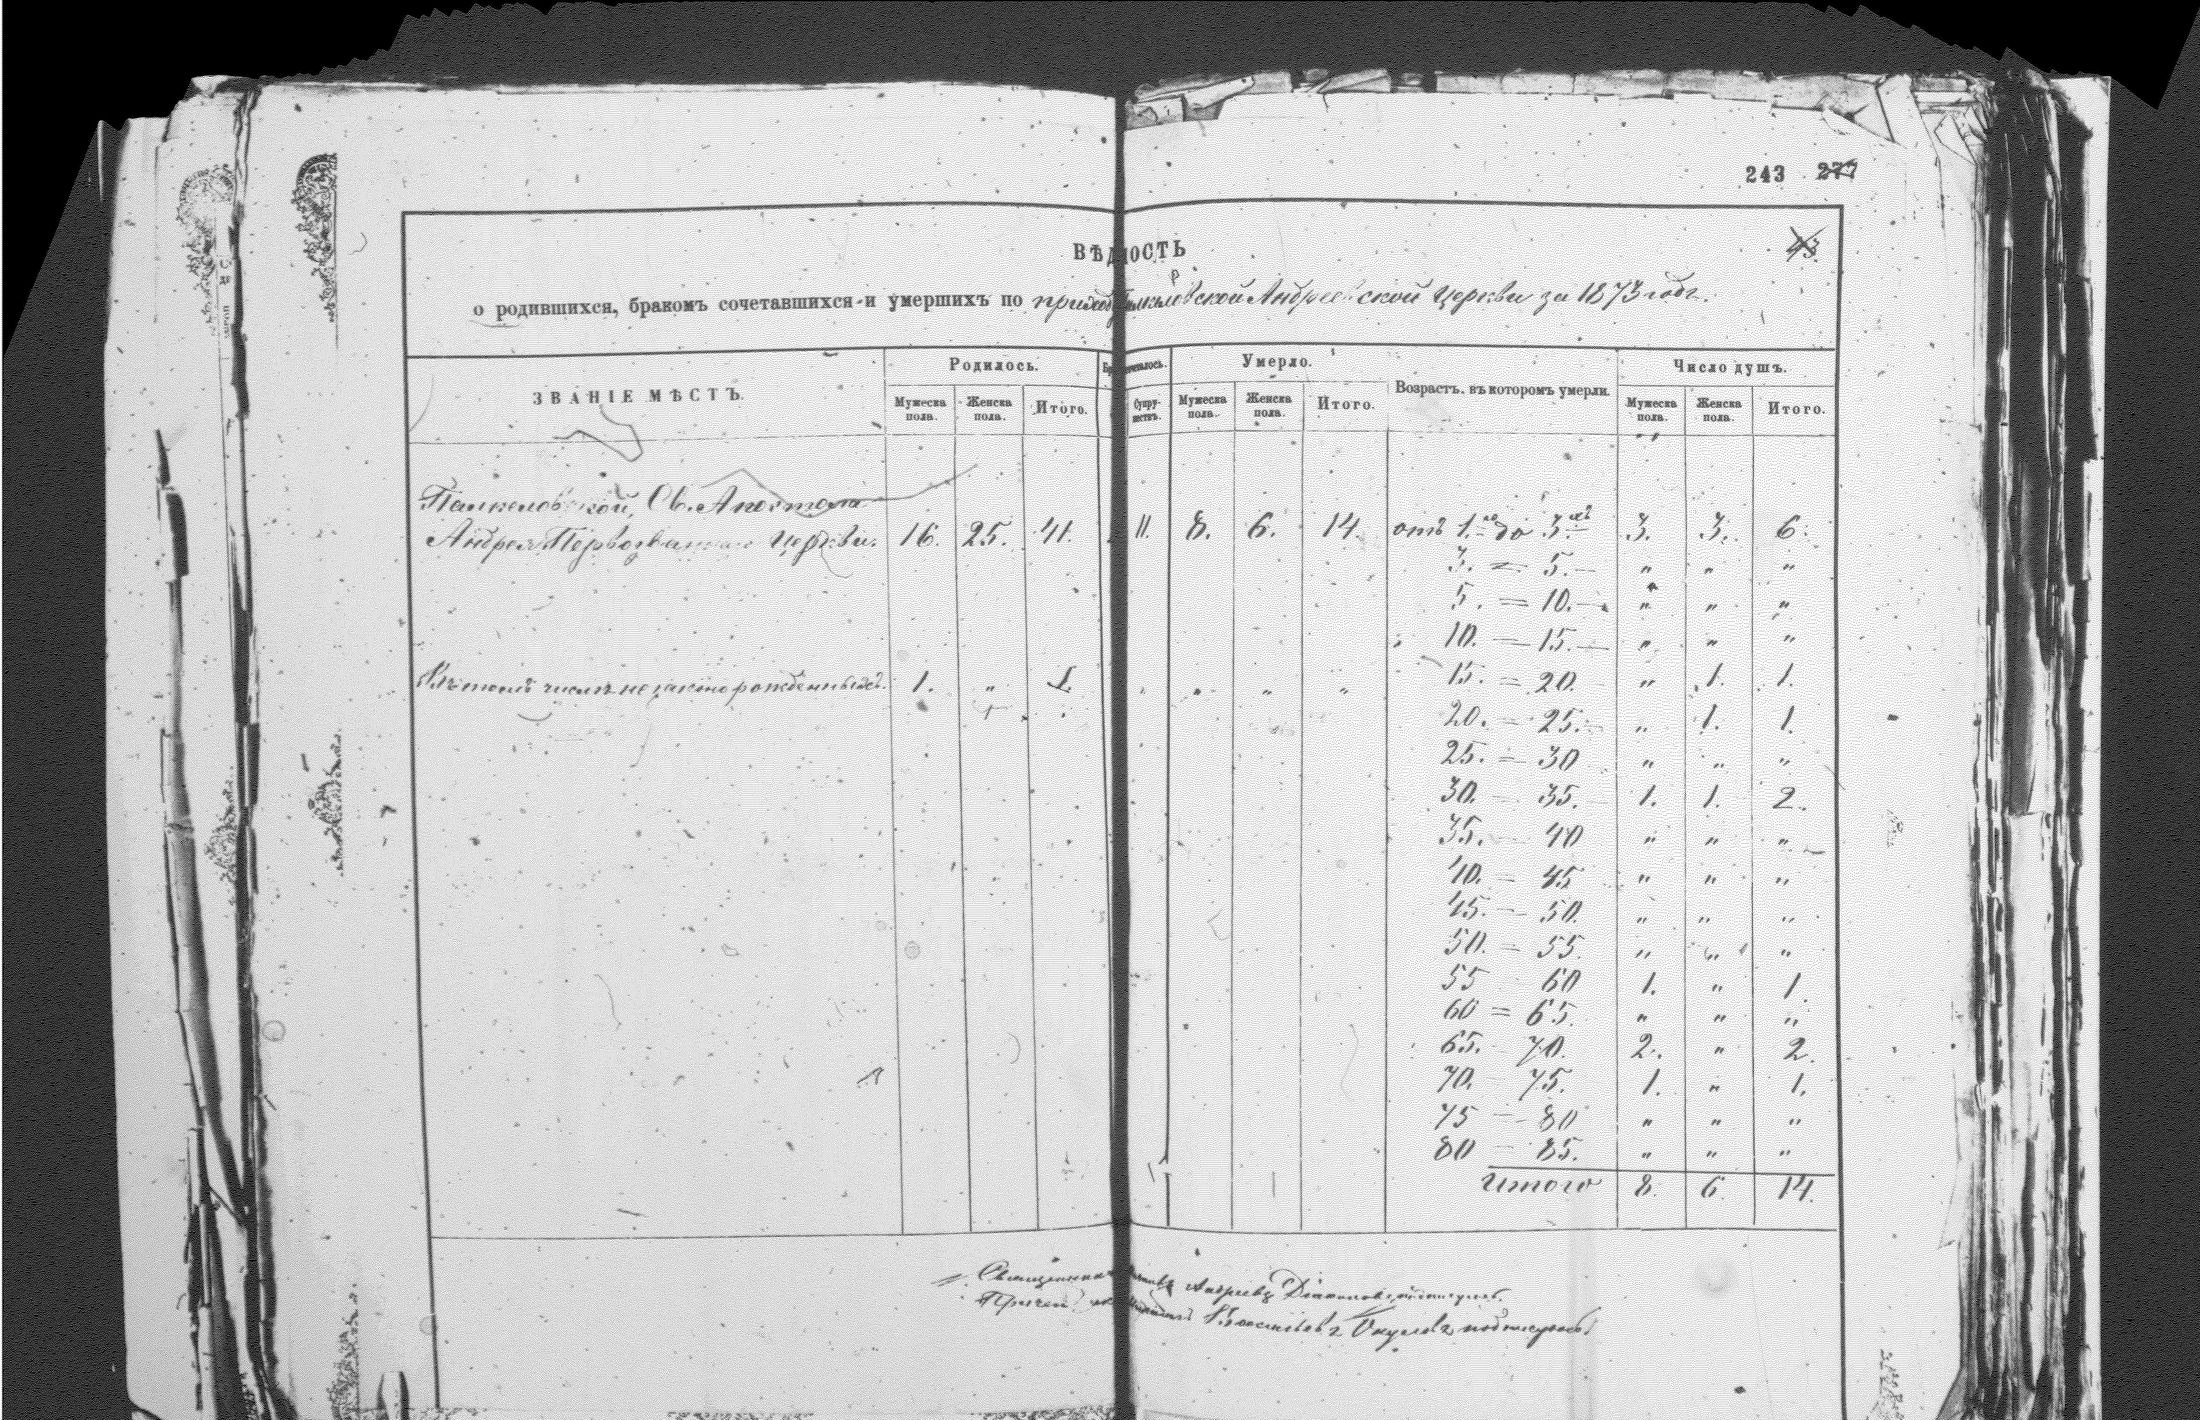 243 277
43.
ВѢДМОСТЬ
о родившихся, бракомъ сочетавшихся и умершихъ по приходу Палкеловской Андреевской Церкви за 1873 годъ.
ЗВАНІЕ МѢСТЪ. Родилось. Умерло. Возрастъ, въ которомъ умерли. Число душъ.
Мужеска пола. Женска пола. Итого. Супружествъ. Мужеска пола. Женска пола. Итого. Мужеска пола. Женска пола. Итого.
Палкеловской, Св. Апостола
Андрея Первозваннаго Церкви. 16. 25. 41. 11. 8. 6. 14. отъ 1.го до 3.хъ 3. 3. 6.
3. = 5. — „ „ „
5. = 10. — „ „ „
10. = 15. — „ „ „
Въ томъ числѣ незаконнорожденныхъ. 1. „ 1. „ „ „ „ 15. = 20. „ 1. 1.
20. = 25. „ 1. 1.
25. = 30 „ „ „
30. — 35. 1. 1. 2.
35. — 40 „ „ „
40. = 45 „ „ „
45. — 50. „ „ „
50. = 55. „ „ „
55 — 60 1. „ 1.
60 = 65. „ „ „
65. — 70. 2. „ 2.
70. — 75. 1. „ 1.
75 — 80 „ „ „
80 — 85. „ „ „
Итого 8. 6 14.
Священникъ Андреевъ